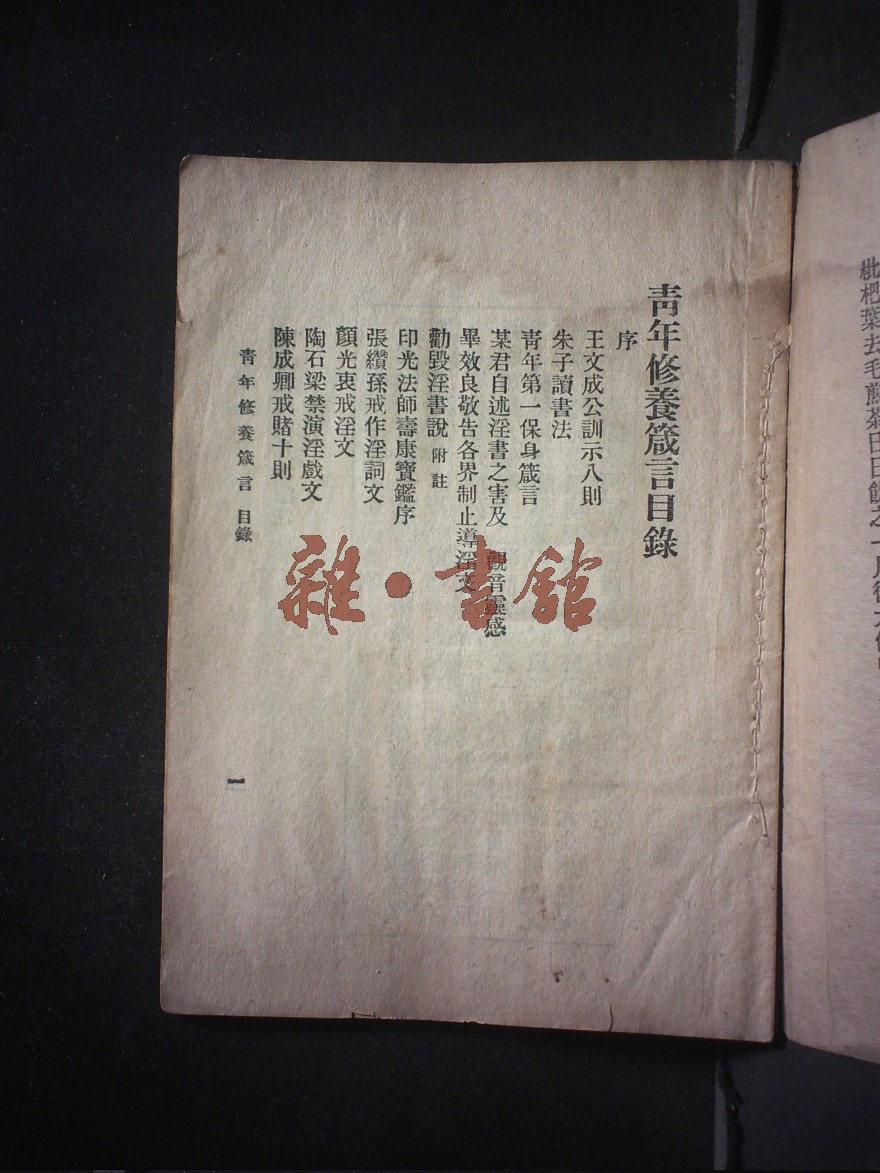 青年修養箴言目錄
序
王文成公訓示八則
朱子讀書法
青年第一保身箴言
某君自述淫書之害及 觀音靈感
畢效良敬告各界制止導淫文
勸毀淫書說 附註
印光法師壽康寶鑑序
張纘孫戒作淫詞文
顏光衷戒淫文
陶石梁禁演淫戲文
陳成卿戒賭十則
青年修養箴言 目錄
一
雜·書館
枇杷葉去毛煎茶日日飲之一月後